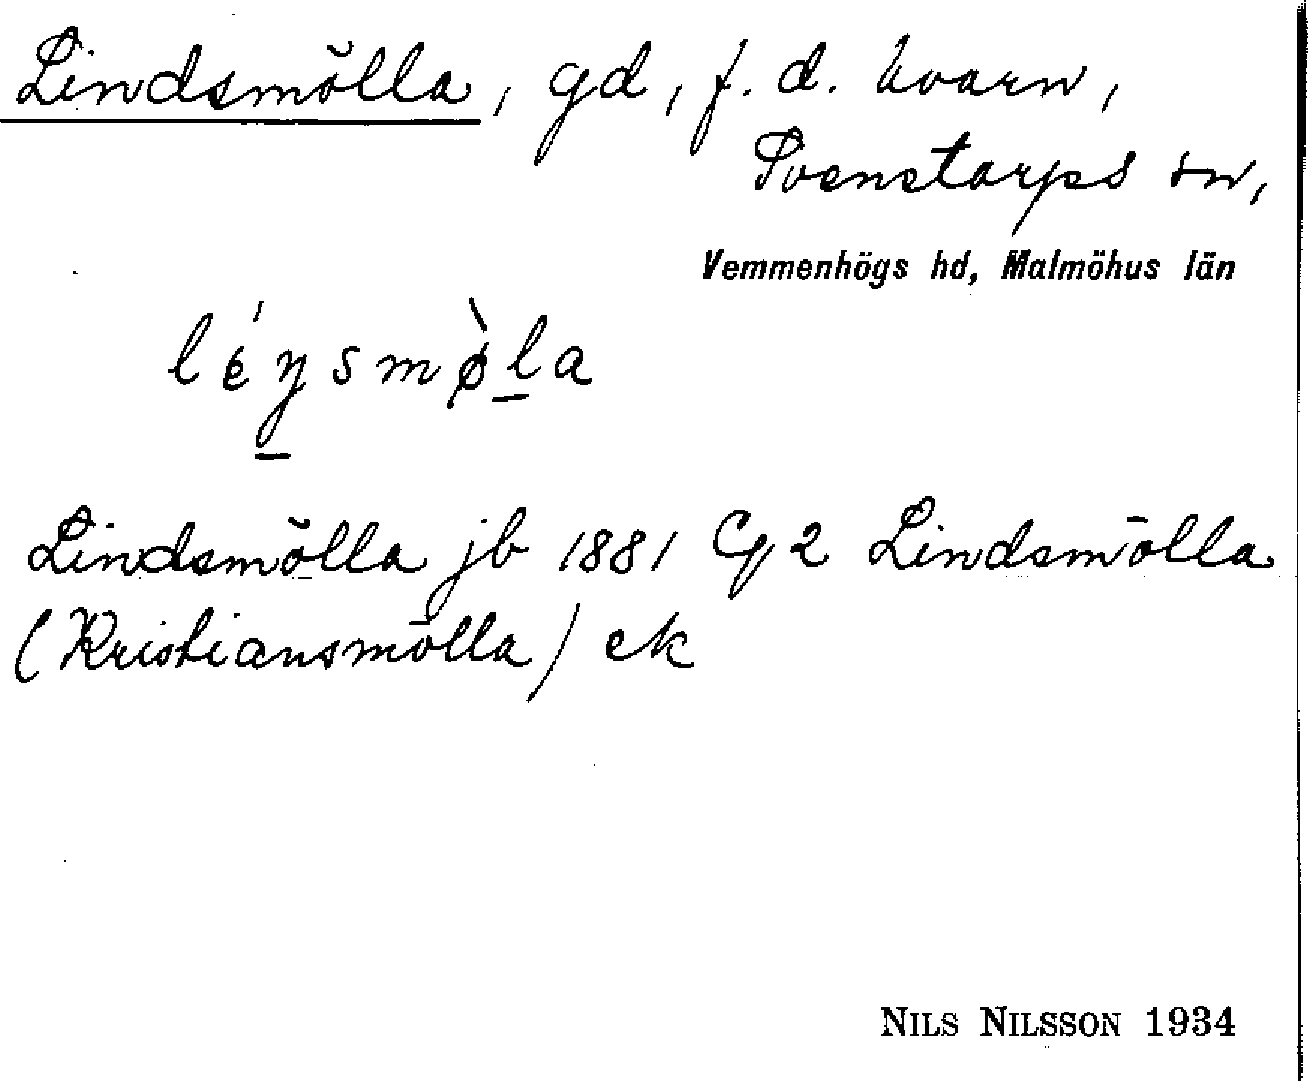 Lindsmölla, gd, f. d. kvarn,
Svenstorps sn,
Vemmenhögs hd, Malmöhus län
léŋsmø̀la
Lindsmölla jb 1881 Cg 2 Lindsmölla
(Kristiansmölla) ek
NILS NILSSON 1934